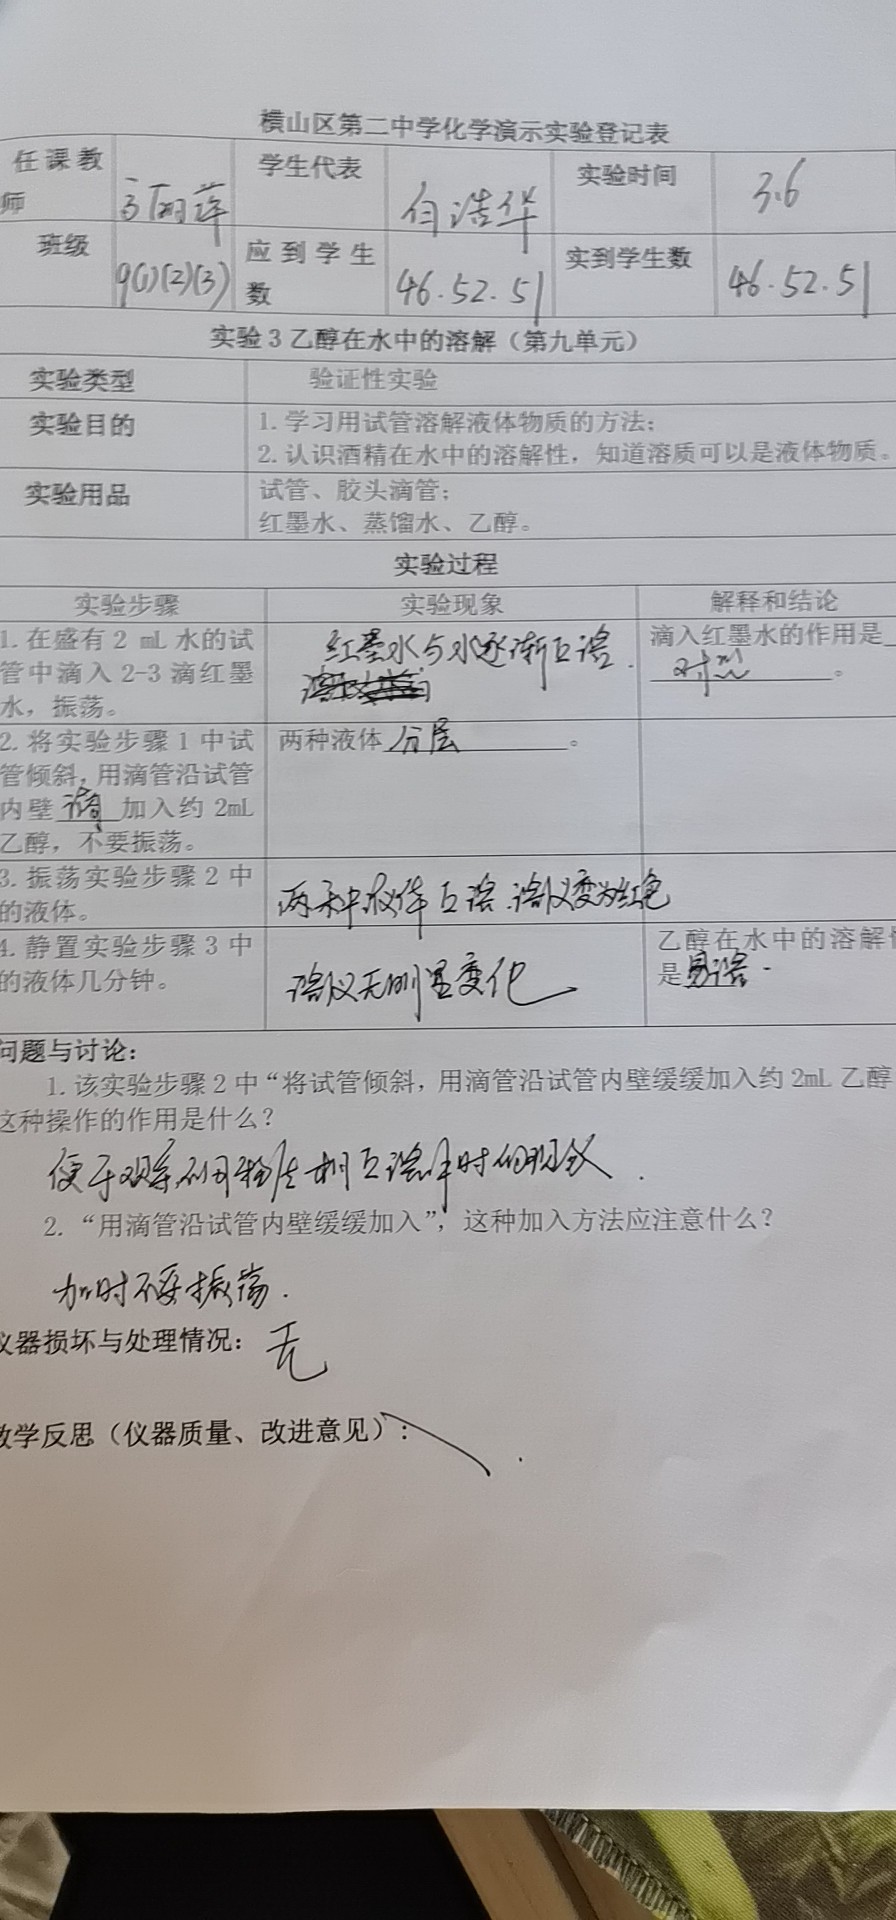 横山区第二中学化学演示实验登记表
任课教师 学生代表 白浩华 实验时间 3.6
班级 9(1)(2)(3) 应到学生数 46.52.51 实到学生数 46.52.51
实验3 乙醇在水中的溶解（第九单元）
实验类型 验证性实验
实验目的 1. 学习用试管溶解液体物质的方法；
2. 认识酒精在水中的溶解性，知道溶质可以是液体物质。
实验用品 试管、胶头滴管；
红墨水、蒸馏水、乙醇。
实验过程
实验步骤 实验现象 解释和结论
1. 在盛有2 mL 水的试
管中滴入2-3滴红墨
水，振荡。
红墨水与水逐渐互溶.
滴入红墨水的作用是
对照。
2. 将实验步骤1中试
管倾斜，用滴管沿试管
内壁 加入约2mL
乙醇，不要振荡。
两种液体分层。
3. 振荡实验步骤2中
的液体。
两种液体互溶.溶液变为红色
4. 静置实验步骤3中
的液体几分钟。
溶液无明显变化
乙醇在水中的溶解
是易溶.
问题与讨论：
1. 该实验步骤2中“将试管倾斜，用滴管沿试管内壁缓缓加入约2mL乙醇
这种操作的作用是什么？
便于观察不同物质相互溶解时的现象.
2. “用滴管沿试管内壁缓缓加入”，这种加入方法应注意什么？
加时不要振荡.
仪器损坏与处理情况：无
教学反思（仪器质量、改进意见）：